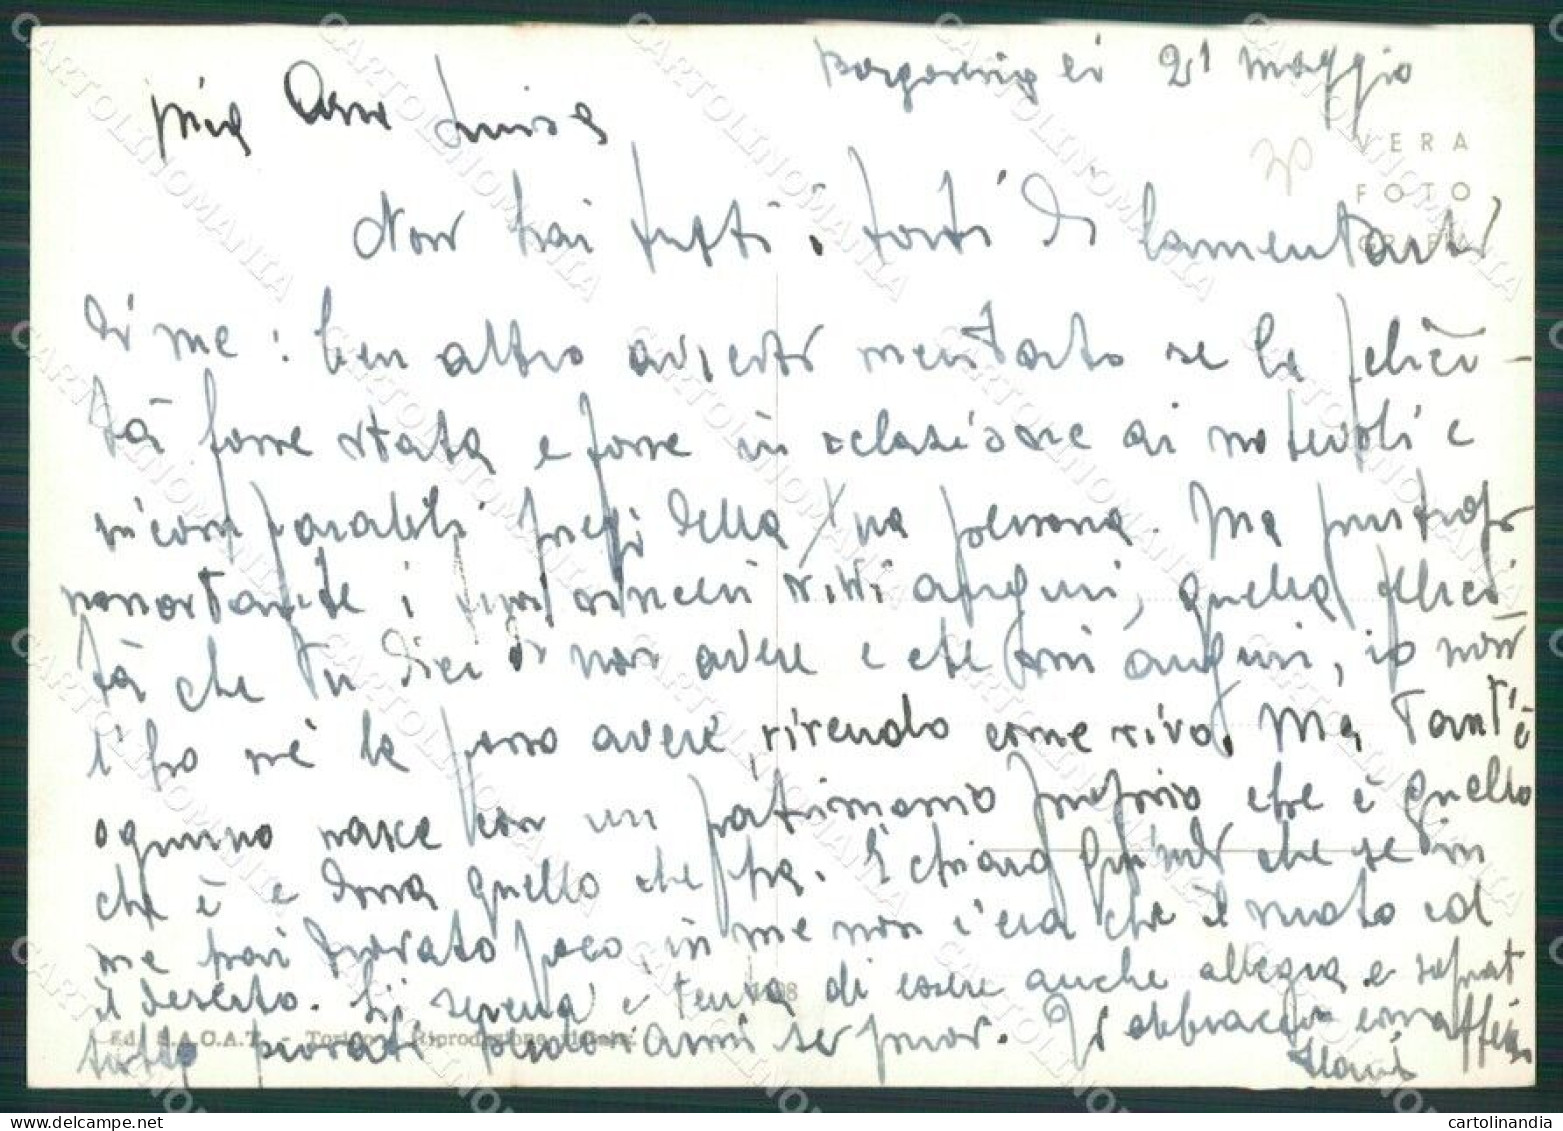 21 maggio
Mia cara Luisa
VERA
FOTO
Non hai tutti i torti di lamentarti
di me: ben altro avresti meritato se la felici-
tà fosse stata e fosse in relazione ai notevoli e
incomparabili pregi della Tua persona. Ma purtroppo
nonostante i tuoi sinceri vivi auguri, quella felici
tà che tu dici di non avere e che mi auguri, io non
l'ho né la posso avere, vivendo come vivo. Ma, tant'è
ognuno nasce con un patrimonio proprio che è quello
che è e dona quello che ha. È chiaro quindi che se in
me hai trovato poco, in me non c'era che il vuoto ed
il deserto. Sii serena e tenta di essere anche allegra e soprat
tutto di perdonarmi. Ti abbraccio
Ed. S.A.C.A.T. - Torino - Riproduzione
CARTOLINOMANIA
cartolinandia